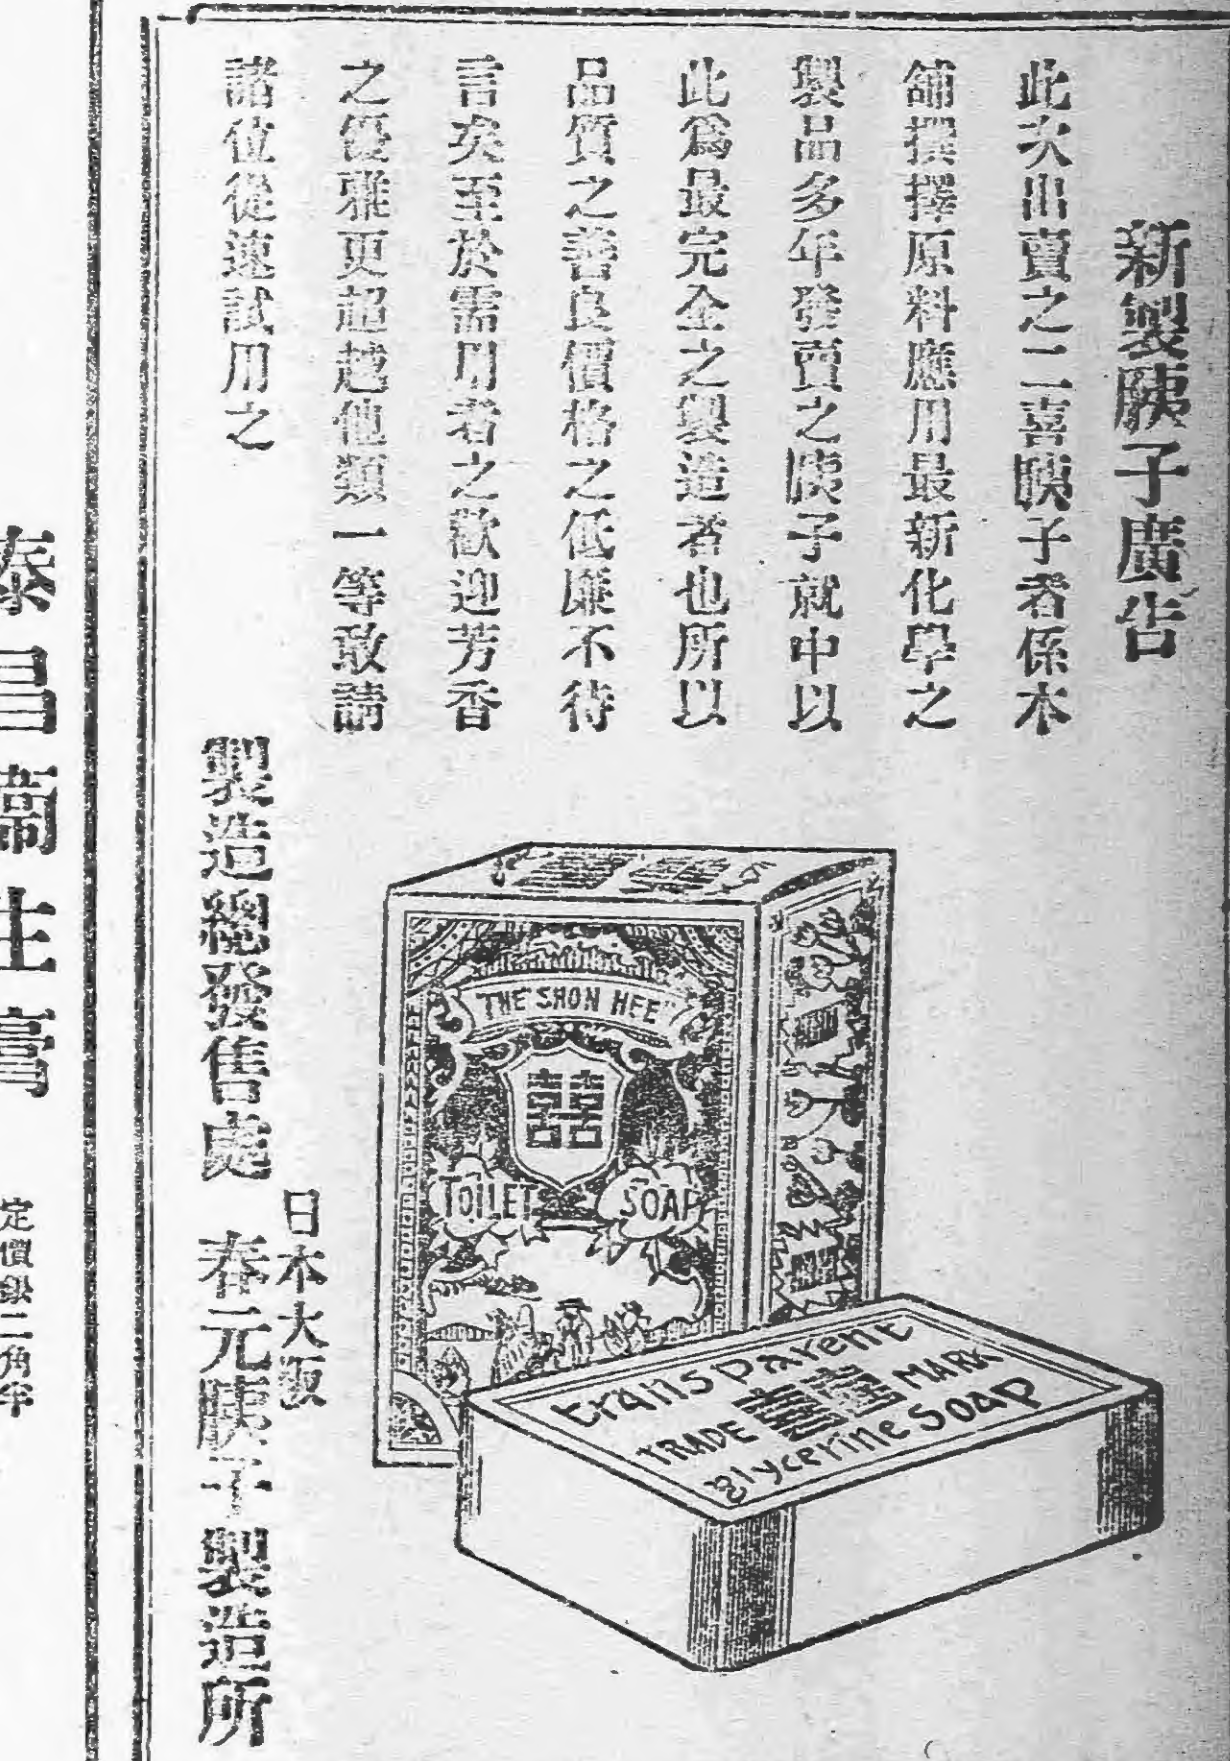 新製胰子廣告
此次出賣之二喜胰子者係本
舖撰擇原料應用最新化學之
製品多年發賣之胰子就中以
此爲最完全之製造者也所以
品質之善良價格之低廉不待
言矣至於需用者之歡迎芳香
之優雅更超越他類一等敢請
諸位從速試用之
THE "SHON HEE"
囍
TOILET SOAP
transparent
TRADE 囍 MARK
glycerine SOAP
日本大阪
製造總發售處 春元胰子製造所
定價銀二角半